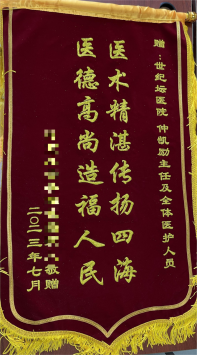 赠:世纪坛医院 仲凯励主任及全体医护人员
医术精湛传扬四海
医德高尚造福人民
敬赠
二〇二三年七月